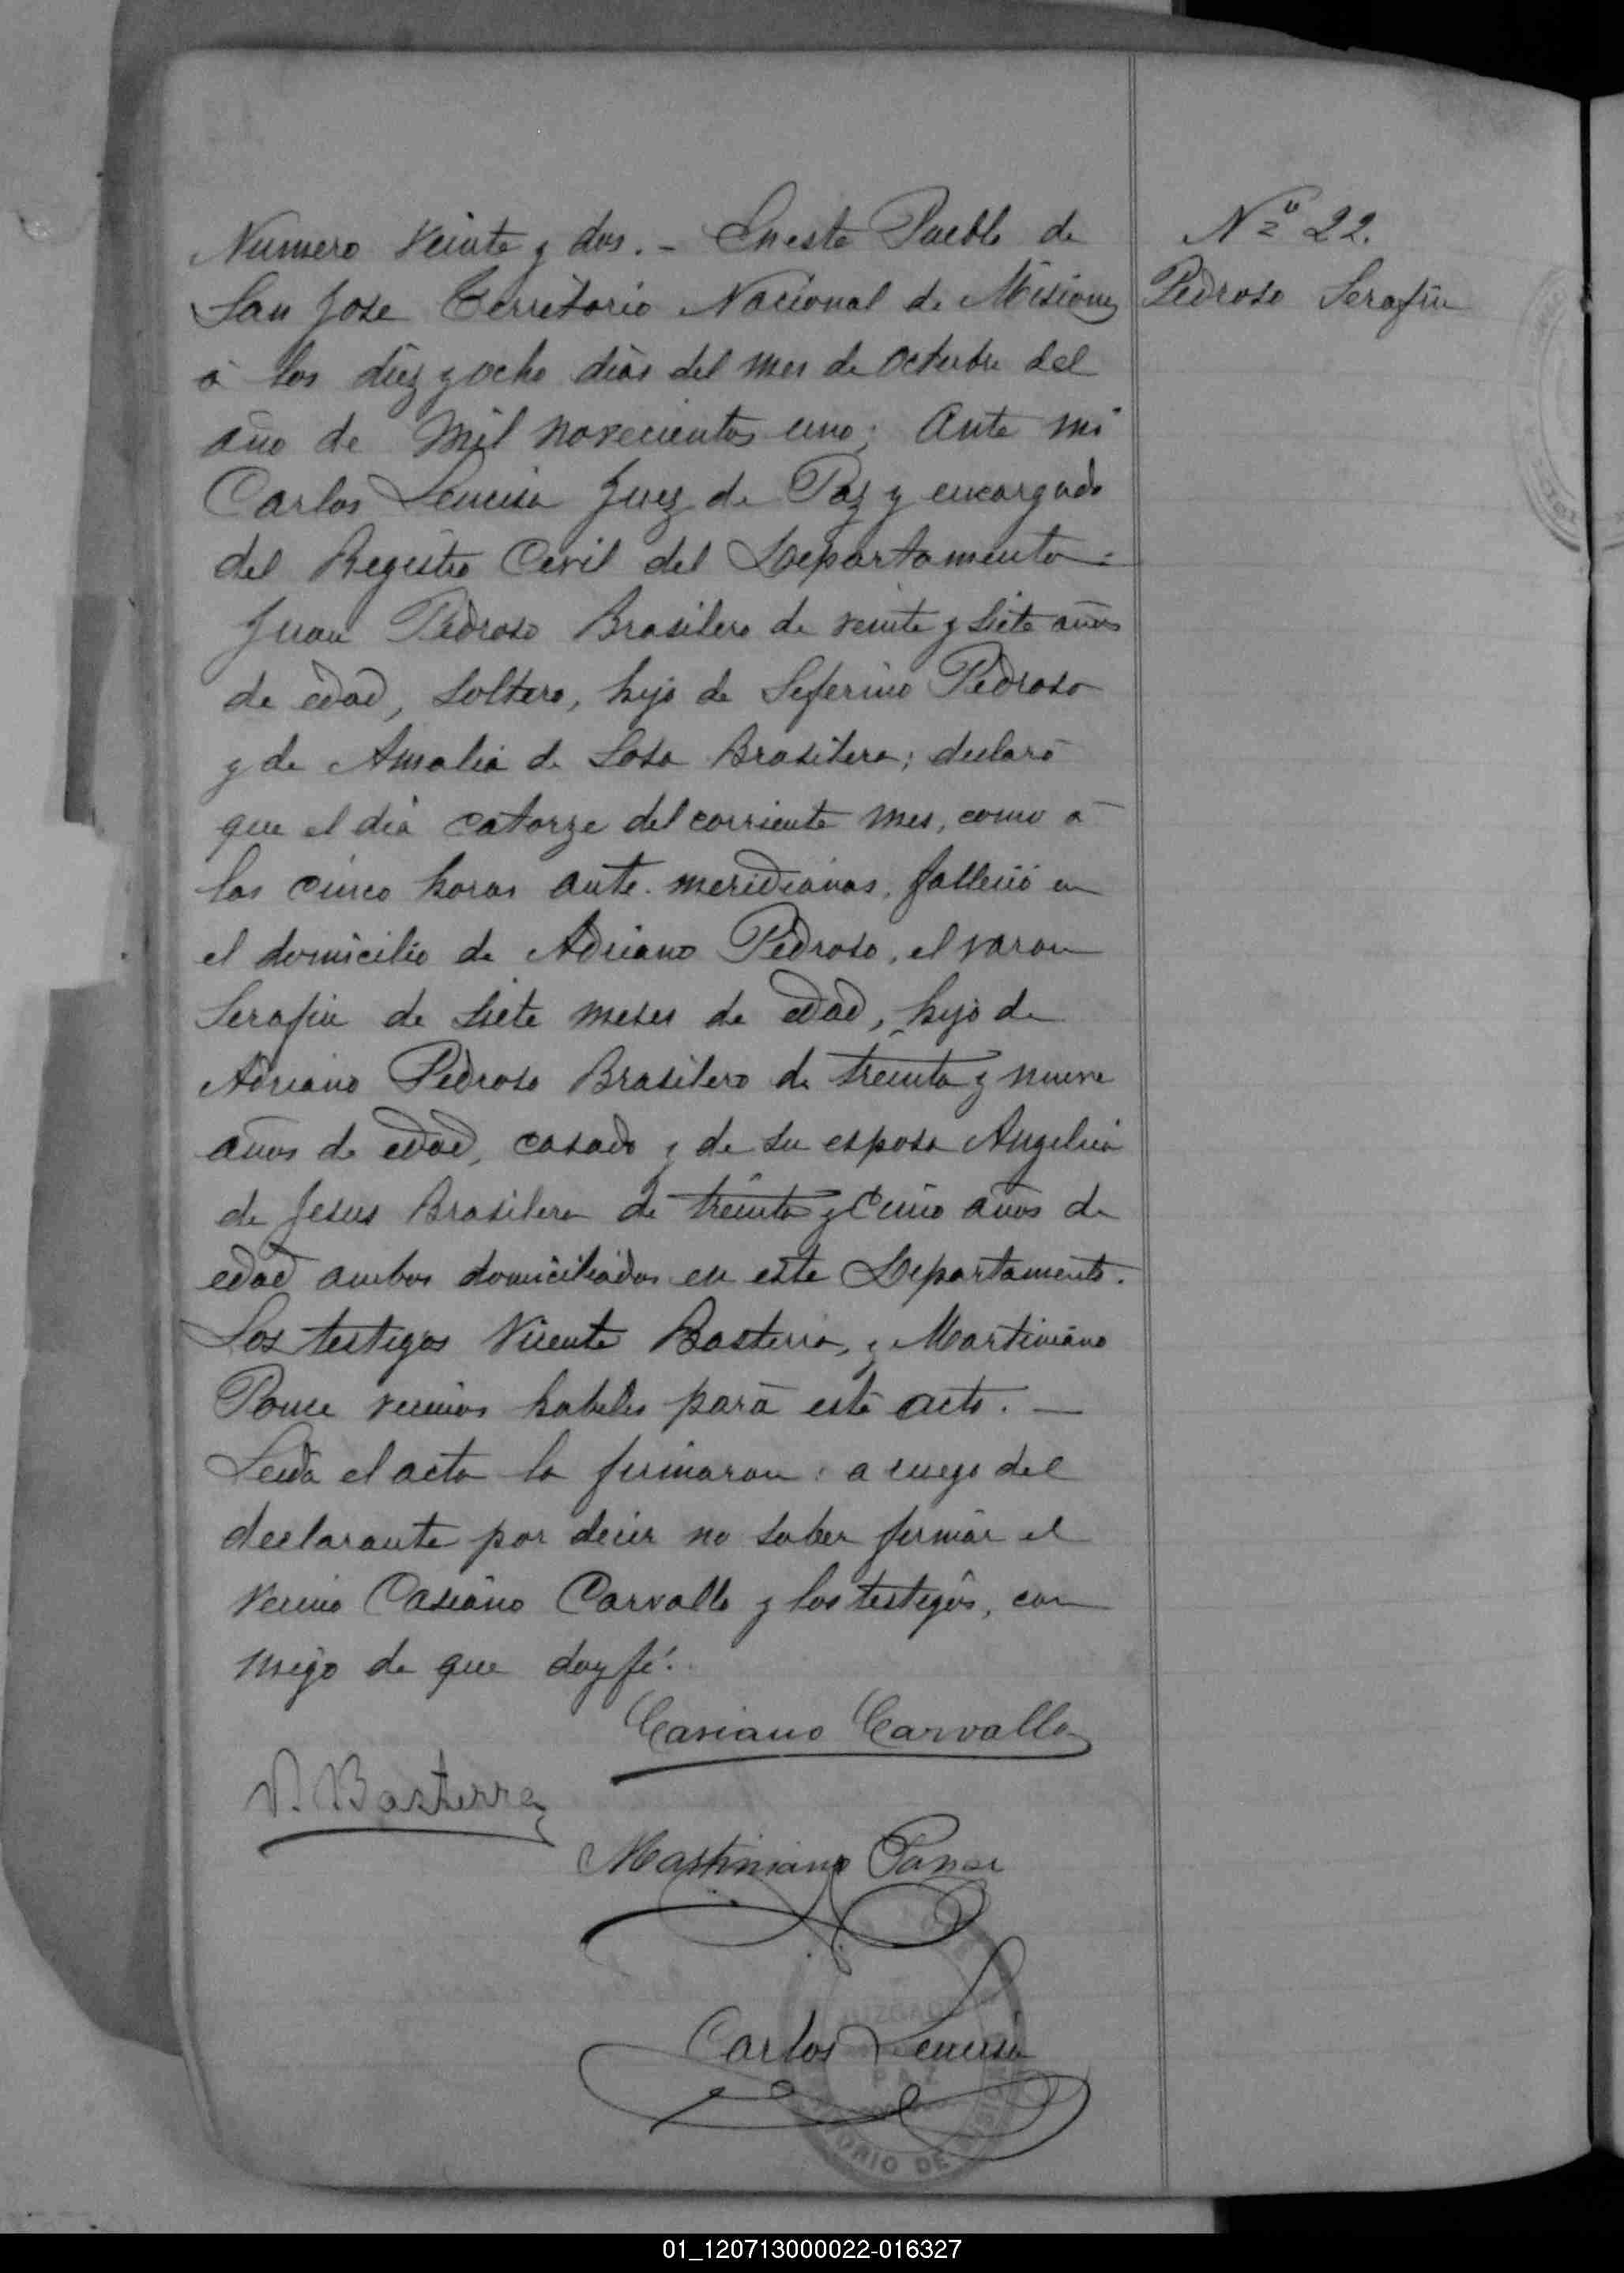 Numero veinte y dos. - En este Pueblo de
San Jose Territorio Nacional de Misiones
á los diez y ocho dias del mes de Octubre del
año de mil novecientos uno; Ante mi
Carlos Juez de Paz y encargado
del Registro Civil del Departamento:
Juan Pedroso Brasilero de veinte y siete años
de edad, soltero, hijo de Seferino Pedroso
y de Amalia de Sosa Brasilera; declaró
que el dia catorze del corriente mes, como á
las cinco horas ante. meridianas, falleció en
el domicilio de Adriano Pedroso, el varon
Serafin de siete meses de edad, hijo de
Adriano Pedroso Brasilero de treinta y nueve
años de edad, casado y de su esposa Angelica
de Jesus Brasilera de treinta y cinco años de
edad ambos domiciliados en este Departamento.
Los testigos Vicente Basterra, y Martiniano
Ponce vecinos habiles para este acto. —
Leida el acta la firmaron: a ruego del
declarante por decir no saber firmar el
vecino Casiano Carvallo y los testigos, con
migo de que doy fé.
Casiano Carvallo
V. Basterra
Martiniano Ponce
Carlos
JUZGADO
PAZ
TORIO DE MISIONES
Nº 22.
Pedroso Serafin
01_120713000022-016327